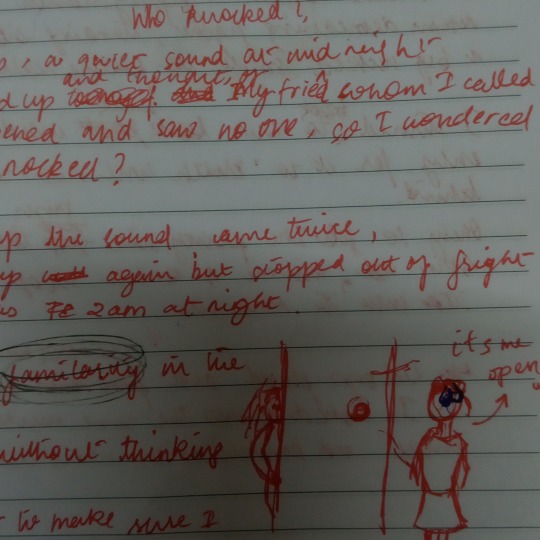 Who knocked?,
, a quiet sound at midnight
and thought, of
d up My frien whom I called
ened and saw no one, so I wondered
nocked?
up the sound came twice,
up again but stopped out of fright
as 2am at night.
familarity in the
it's me
open
without thinking
to make sure I